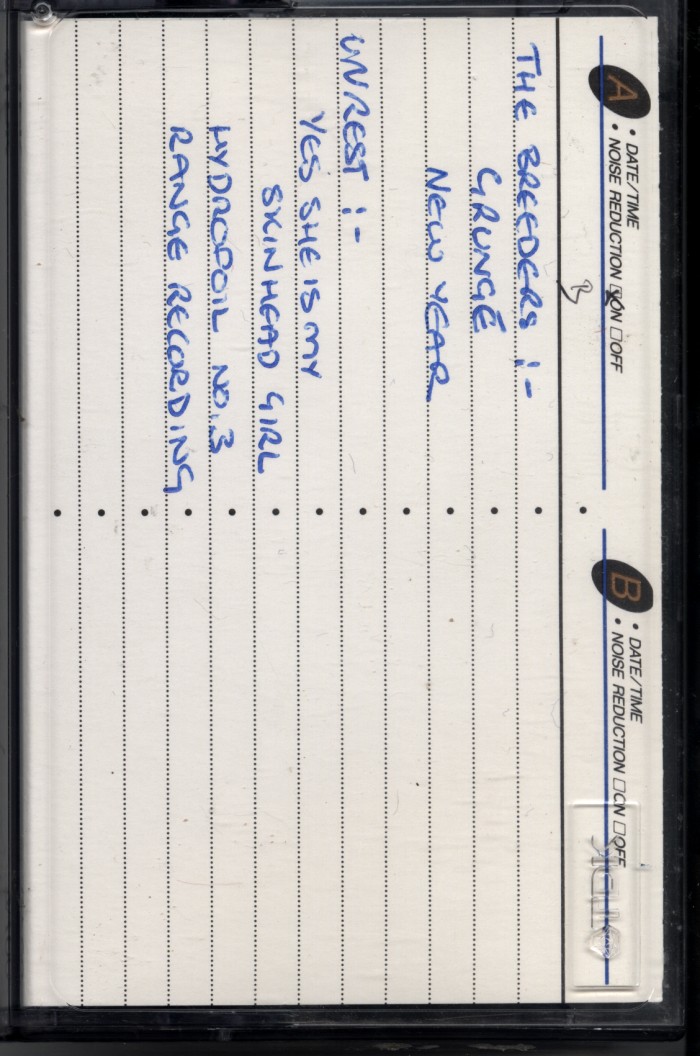 A
• DATE/TIME
• NOISE REDUCTION ☒ON ☐OFF
B
THE BREEDERS :-
GRUNGÉ
NEW YEAR
UNREST :-
YES SHE IS MY
SKINHEAD GIRL
HYDROFOIL NO.3
RANGE RECORDING
B
• DATE/TIME
• NOISE REDUCTION ☐ON ☐OFF